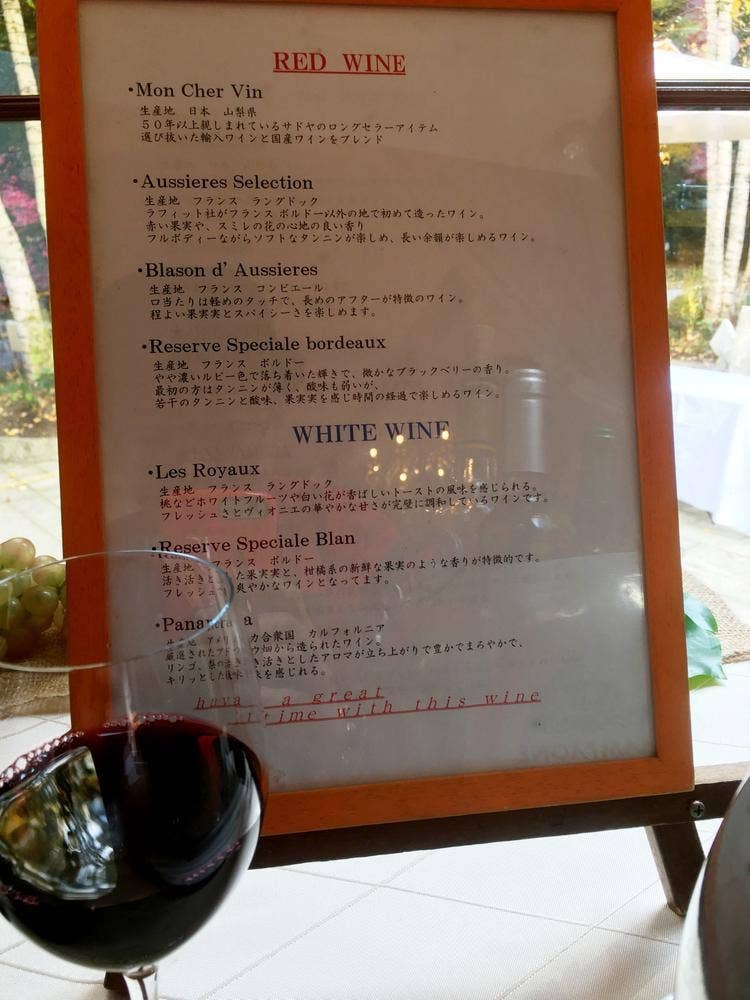 RED WINE
・Mon Cher Vin
生産地 日本 山梨県
５０年以上親しまれているサドヤのロングセラーアイテム
選び抜いた輸入ワインと国産ワインをブレンド
・Aussieres Selection
生産地 フランス ラングドック
ラフィット社がフランス ボルドー以外の地で初めて造ったワイン。
赤い果実や、スミレの花の心地の良い香り
フルボディーながらソフトなタンニンが楽しめ、長い余韻が楽しめるワイン。
・Blason d' Aussieres
生産地 フランス コンビエール
口当たりは軽めのタッチで、長めのアフターが特徴のワイン。
程よい果実実とスパイシーさを楽しめます。
・Reserve Speciale bordeaux
生産地 フランス ボルドー
やや濃いルビー色で落ち着いた輝きで、微かなブラックベリーの香り。
最初の方はタンニンが薄く、酸味も弱いが、
若干のタンニンと酸味、果実実を感じ時間の経過で楽しめるワイン。
WHITE WINE
・Les Royaux
生産地 フランス ラングドック
桃などホワイトフルーツや白い花が香ばしいトーストの風味を感じられる。
フレッシュさとヴィオニエの華やかな甘さが完璧に調和しているワインです。
・Reserve Speciale Blan
生産地 フランス ボルドー
活き活きとした果実実と、柑橘系の新鮮な果実のような香りが特徴的です。
フレッシュで爽やかなワインとなってます。
生産地 アメリカ合衆国 カルフォルニア
厳選された 畑から造られたワイン。
リンゴ、梨の 活き活きとしたアロマが立ち上がりで豊かでまろやかで、
キリッとした を感じれる。
have a great
time with this wine